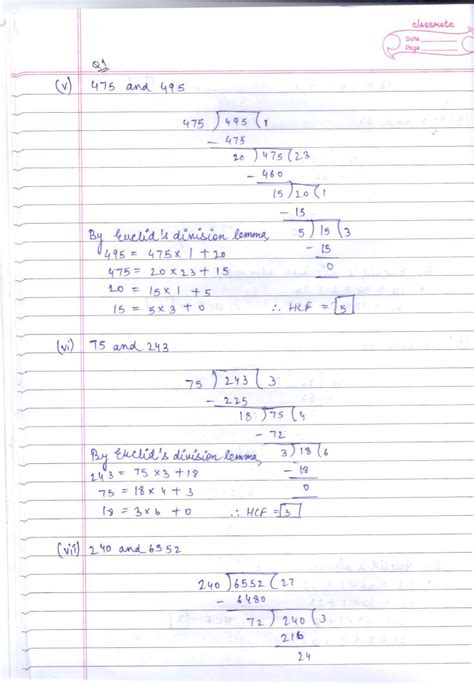 classmate
Date
Page
Q1
(v) 475 and 495
475 ) 495 ( 1
- 475
20 ) 475 ( 23
- 460
15 ) 20 ( 1
- 15
By Euclid's division lemma, 5 ) 15 ( 3
495 = 475 × 1 + 20 - 15
475 = 20 × 23 + 15 0
20 = 15 × 1 + 5
15 = 5 × 3 + 0 ∴ HCF = 5
(vi) 75 and 243
75 ) 243 ( 3
- 225
18 ) 75 ( 4
- 72
By Euclid's division lemma, 3 ) 18 ( 6
243 = 75 × 3 + 18 - 18
75 = 18 × 4 + 3 0
18 = 3 × 6 + 0 ∴ HCF = 3
(vii) 240 and 6552
240 ) 6552 ( 27
- 6480
72 ) 240 ( 3
216
24